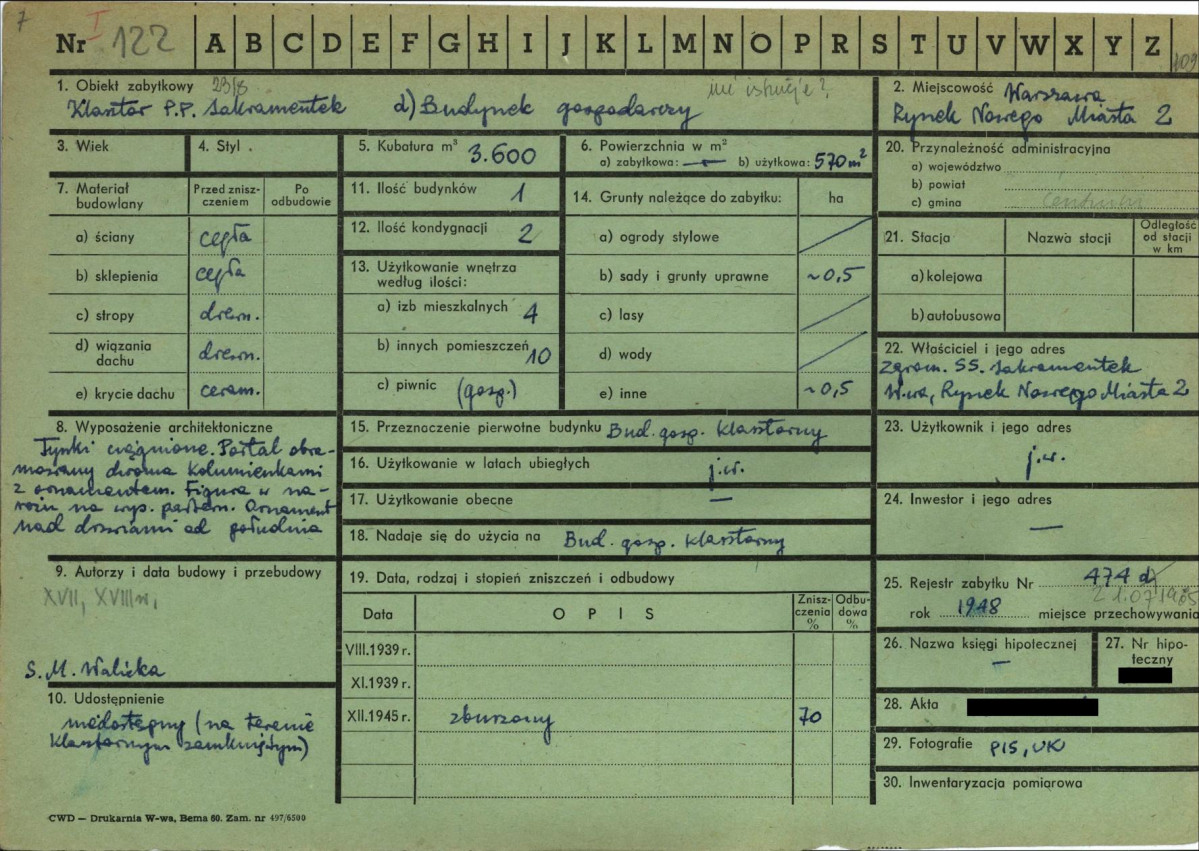 7
Nr I 122 A B C D E F G H I J K L M N O P R S T U V W X Y Z 109
1. Obiekt zabytkowy 23/8 nie istnieje?
Klasztor P.P. Sakramentek d) Budynek gospodarczy
2. Miejscowość Warszawa
Rynek Nowego Miasta 2
3. Wiek
4. Styl
5. Kubatura m³ 3.600
6. Powierzchnia w m²
a) zabytkowa: — b) użytkowa: 570 m²
20. Przynależność administracyjna
a) województwo
b) powiat
c) gmina
7. Materiał budowlany
Przed zniszczeniem
Po odbudowie
a) ściany cegła
b) sklepienia cegła
c) stropy drewn.
d) wiązania dachu drewn.
e) krycie dachu ceram.
11. Ilość budynków 1
12. Ilość kondygnacji 2
13. Użytkowanie wnętrza
według ilości:
a) izb mieszkalnych 4
b) innych pomieszczeń 10
c) piwnic (gosp.)
14. Grunty należące do zabytku: ha
a) ogrody stylowe
b) sady i grunty uprawne ~0,5
c) lasy
d) wody
e) inne ~0,5
21. Stacja Nazwa stacji Odległość od stacji w km
a) kolejowa
b) autobusowa
22. Właściciel i jego adres
Zgrom. SS. Sakramentek
W-wa, Rynek Nowego Miasta 2
8. Wyposażenie architektoniczne
Tynki ciągnione. Portal obra-
mowany dwoma kolumienkami
z ornamentem. Figura w na-
rożu na wys. parteru. Ornament
nad drzwiami od południa
15. Przeznaczenie pierwotne budynku Bud. gosp. klasztorny
16. Użytkowanie w latach ubiegłych j.w.
17. Użytkowanie obecne —
18. Nadaje się do użycia na Bud. gosp. klasztorny
23. Użytkownik i jego adres
j.w.
24. Inwestor i jego adres
—
9. Autorzy i data budowy i przebudowy
XVII, XVIII w.
S. M. Walicka
10. Udostępnienie
niedostępny (na terenie
klasztornym zamkniętym)
19. Data, rodzaj i stopień zniszczeń i odbudowy
Data OPIS Zniszczenia % Odbudowa %
VIII.1939 r.
XI.1939 r.
XII.1945 r. zburzony 70
25. Rejestr zabytku Nr 474 d
21.07.1965
rok 1948 miejsce przechowywania
26. Nazwa księgi hipotecznej
—
27. Nr hipo-
teczny
28. Akta
29. Fotografie PIS, UK
30. Inwentaryzacja pomiarowa
CWD — Drukarnia W-wa, Bema 60. Zam. nr 497/6500